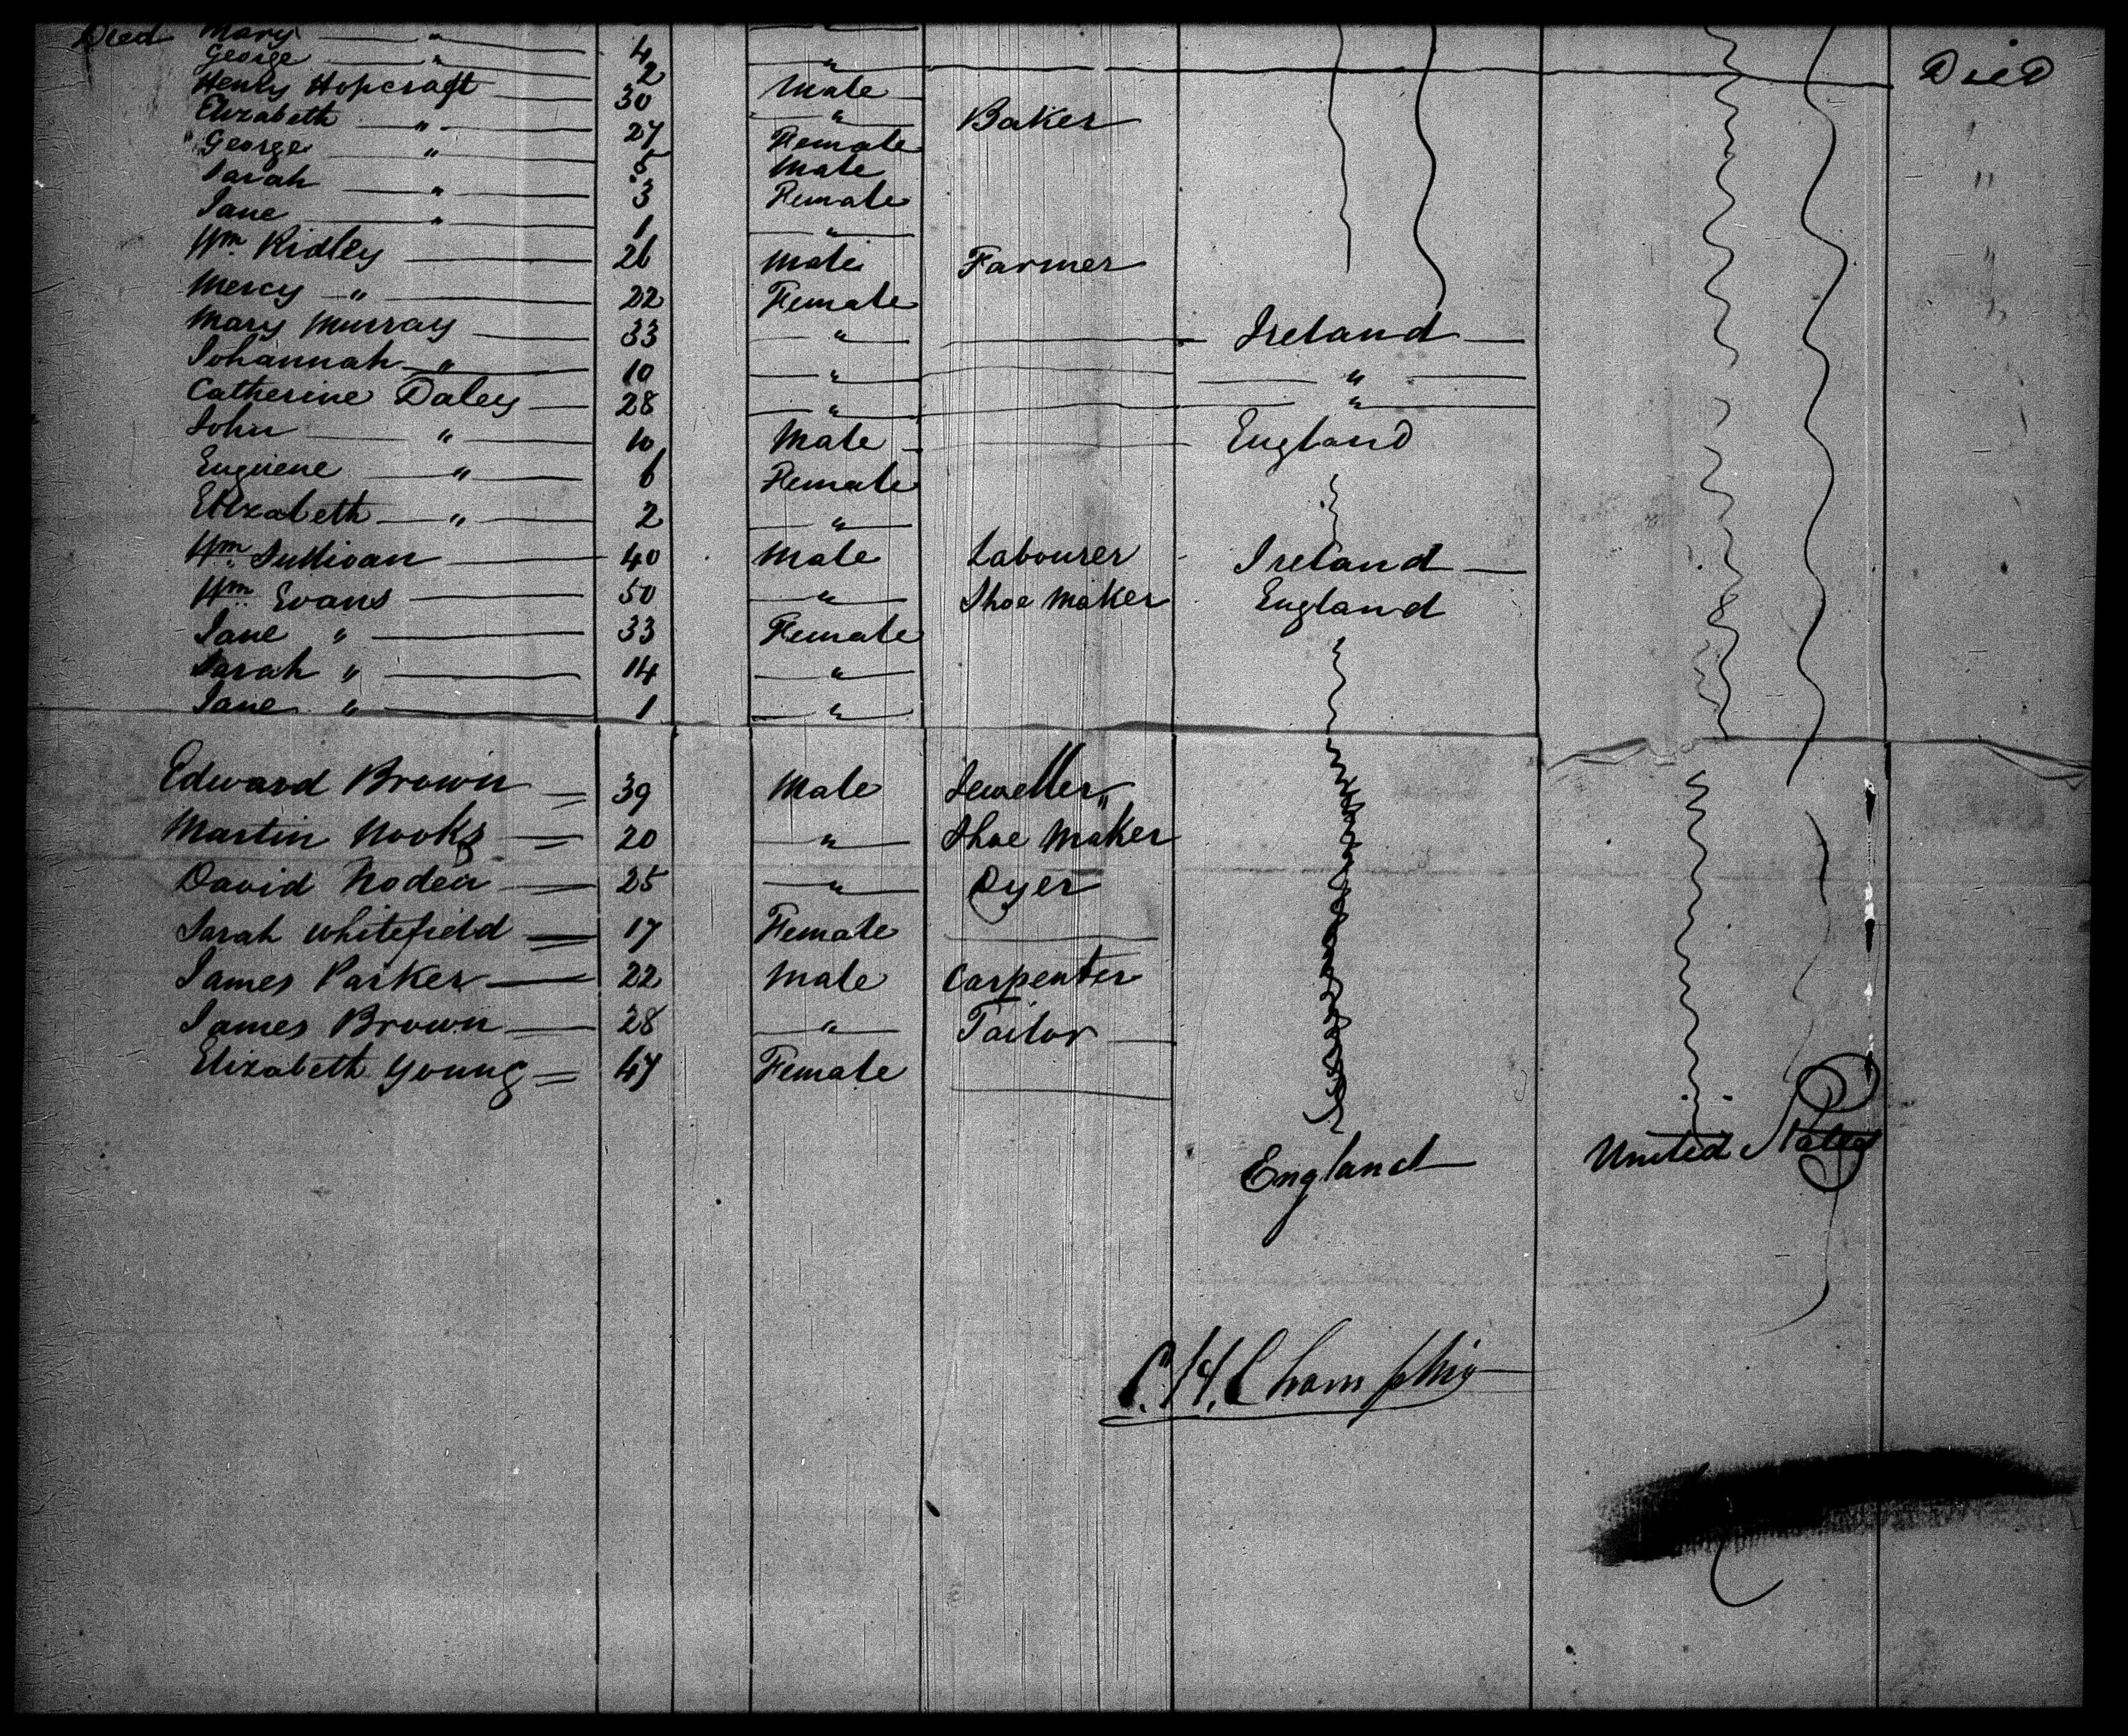 Died Mary " 4 "
George " 2 " Died
Henry Hopcraft 30 Male Baker
Elizabeth " 27 Female "
George " 5 Male
Sarah " 3 Female "
Jane " 1 "
Wm. Ridley 26 Male Farmer "
Mercy " 22 Female "
Mary Murray 33 " Ireland
Johannah " 10 " "
Catherine Daley 28 " "
John " 10 Male England
Euguene " 6 Female
Elizabeth " 2 "
Wm. Sullivan 40 Male Labourer Ireland
Wm. Evans 50 " Shoe Maker England
Jane " 33 Female
Sarah " 14 "
Jane " 1 "
Edward Brown 39 Male Jeweller
Martin Nooks 20 " Shoe Maker
David Noden 25 " Dyer
Sarah Whitefield 17 Female
James Parker 22 Male Carpenter
James Brown 28 " Tailor
Elizabeth Young 47 Female
England United States
C. H. Champlin